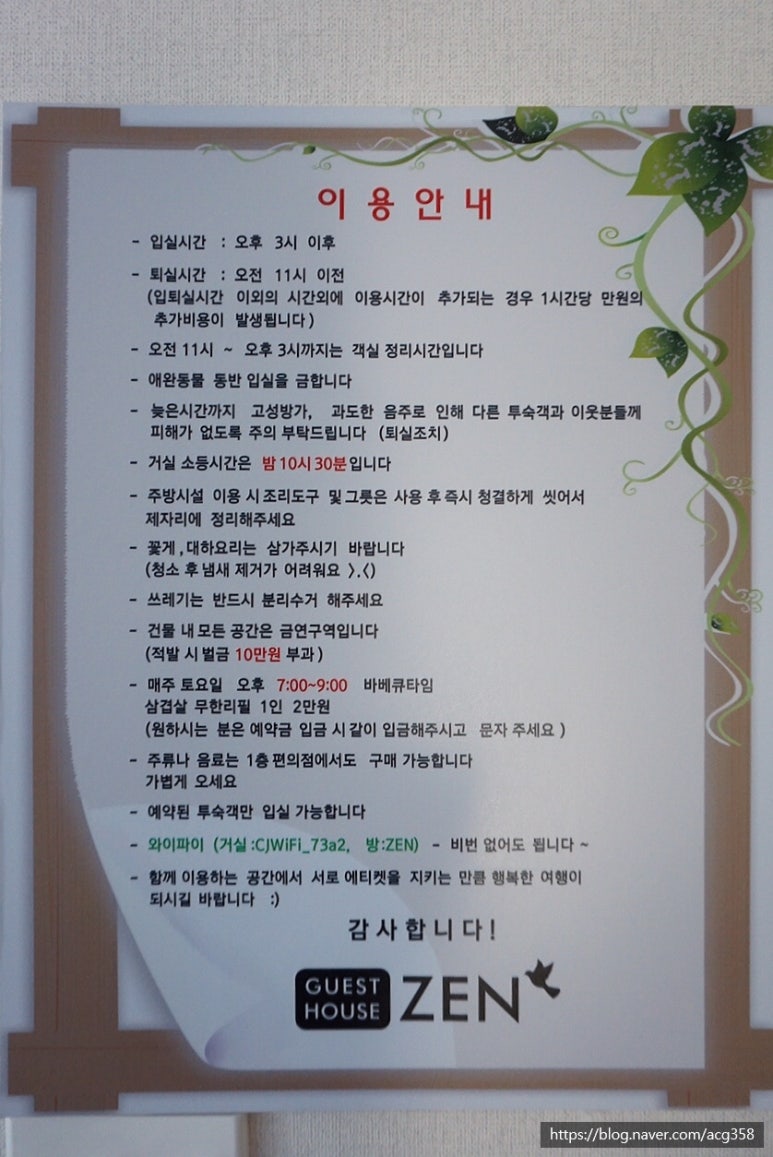 이용안내
- 입실시간 : 오후 3시 이후
- 퇴실시간 : 오전 11시 이전
(입퇴실시간 이외의 시간외에 이용시간이 추가되는 경우 1시간당 만원의
추가비용이 발생됩니다)
- 오전 11시 ~ 오후 3시까지는 객실 정리시간입니다
- 애완동물 동반 입실을 금합니다
- 늦은시간까지 고성방가, 과도한 음주로 인해 다른 투숙객과 이웃분들께
피해가 없도록 주의 부탁드립니다 (퇴실조치)
- 거실 소등시간은 밤 10시 30분입니다
- 주방시설 이용 시 조리도구 및 그릇은 사용 후 즉시 청결하게 씻어서
제자리에 정리해주세요
- 꽃게, 대하요리는 삼가주시기 바랍니다
(청소 후 냄새 제거가 어려워요 >.<)
- 쓰레기는 반드시 분리수거 해주세요
- 건물 내 모든 공간은 금연구역입니다
(적발 시 벌금 10만원 부과)
- 매주 토요일 오후 7:00~9:00 바베큐타임
삼겹살 무한리필 1인 2만원
(원하시는 분은 예약금 입금 시 같이 입금해주시고 문자 주세요)
- 주류나 음료는 1층 편의점에서도 구매 가능합니다
가볍게 오세요
- 예약된 투숙객만 입실 가능합니다
- 와이파이 (거실:CJWiFi_73a2, 방:ZEN) - 비번 없어도 됩니다 ~
- 함께 이용하는 공간에서 서로 에티켓을 지키는 만큼 행복한 여행이
되시길 바랍니다 :)
감사합니다!
GUEST HOUSE ZEN
https://blog.naver.com/acg358